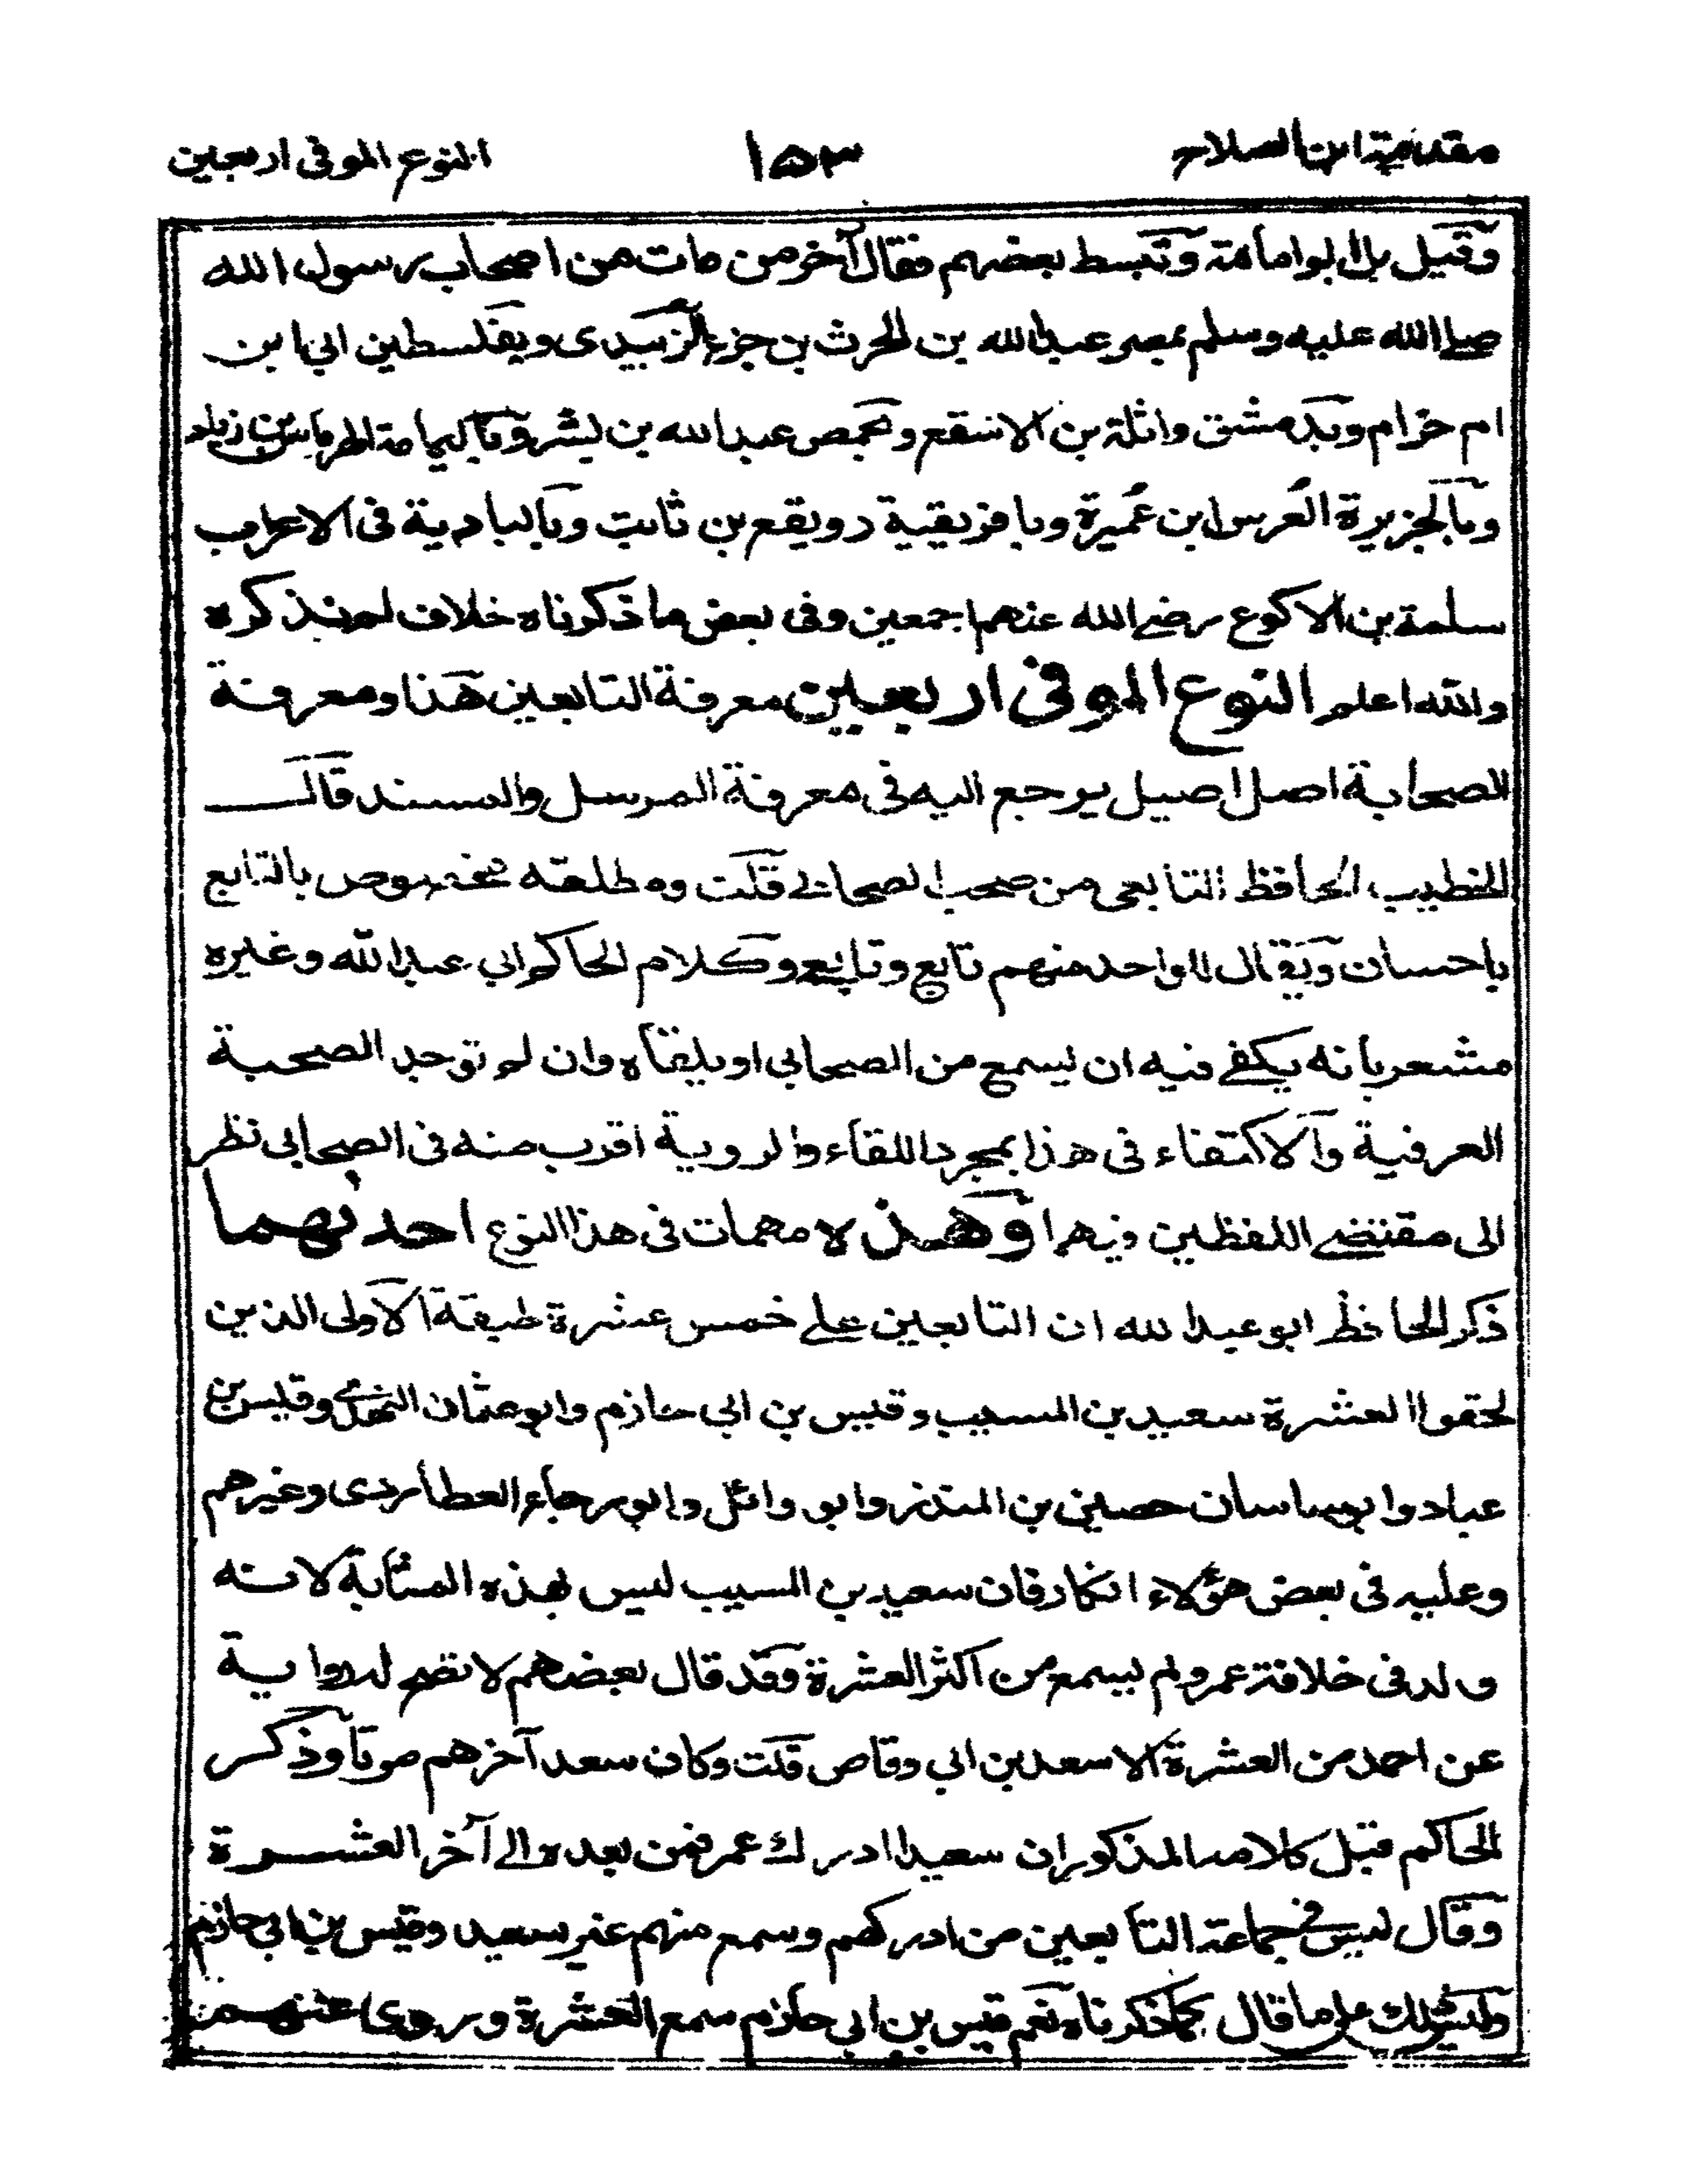 مقدمة ابن الصلاح
١٥٣
النوع الموفى اربعين
وقيل بل ابو امامة وتبسط بعضهم فقال آخر من مات من اصحاب رسول الله
صلى الله عليه وسلم بمصر عبد الله بن الحرث بن جزء الزبيدى وبفلسطين ابي ابن
ام حرام وبدمشق واثلة بن الاسقع وبحمص عبد الله بن بشر وباليمامة الهرماس بن زياد
وبالجزيرة العُرس ابن عُميرة وبافريقية رويفع بن ثابت وبالبادية فى الاعراب
سلمة بن الاكوع رضي الله عنهم اجمعين وفى بعض ما ذكرناه خلاف لم نذكره
والله اعلم النوع الموفى اربعين معرفة التابعين هذا ومعرفة
الصحابة اصل اصيل يرجع اليه فى معرفة المرسل والمسند قال
الخطيب الحافظ التابعى من صحب الصحابي قلت ومطلقه مخصوص بالتابع
باحسان ويقال للواحد منهم تابع وتابعي وكلام الحاكم ابي عبد الله وغيره
مشعر بانه يكفي فيه ان يسمع من الصحابي او يلقاه وان لم توجد الصحبة
العرفية والاكتفاء فى هذا بمجرد اللقاء والروية اقرب منه فى الصحابي نظر
الى مقتضى اللفظين فيهما وهذه مهمات فى هذا النوع احدبهما
ذكر الحافظ ابو عبد الله ان التابعين على خمس عشرة طبقة الاولى الذين
لحقوا العشرة سعيد بن المسيب وقيس بن ابي حازم وابو عثمان النهدي وقيس بن
عباد وابو ساسان حصين بن المنذر وابو وائل وابو رجاء العطاردى وغيرهم
وعليه فى بعض هؤلاء انكار فان سعيد بن المسيب ليس بهذه المثابة لانه
ولد فى خلافة عمر ولم يسمع من اكثر العشرة وقد قال بعضهم لا تصح له رواية
عن احد من العشرة الا سعد بن ابي وقاص قلت وكان سعد آخرهم موتا وذكر
الحاكم قبل كلامه المذكور ان سعيدا ادرك عمر فمن بعده الى آخر العشرة
وقال ليس في جماعة التابعين من ادركهم وسمع منهم غير سعيد وقيس بن ابي حازم
وليس ذلك على ما قال كما ذكرناه نعم قيس بن ابي حازم سمع العشرة وروى عنهم